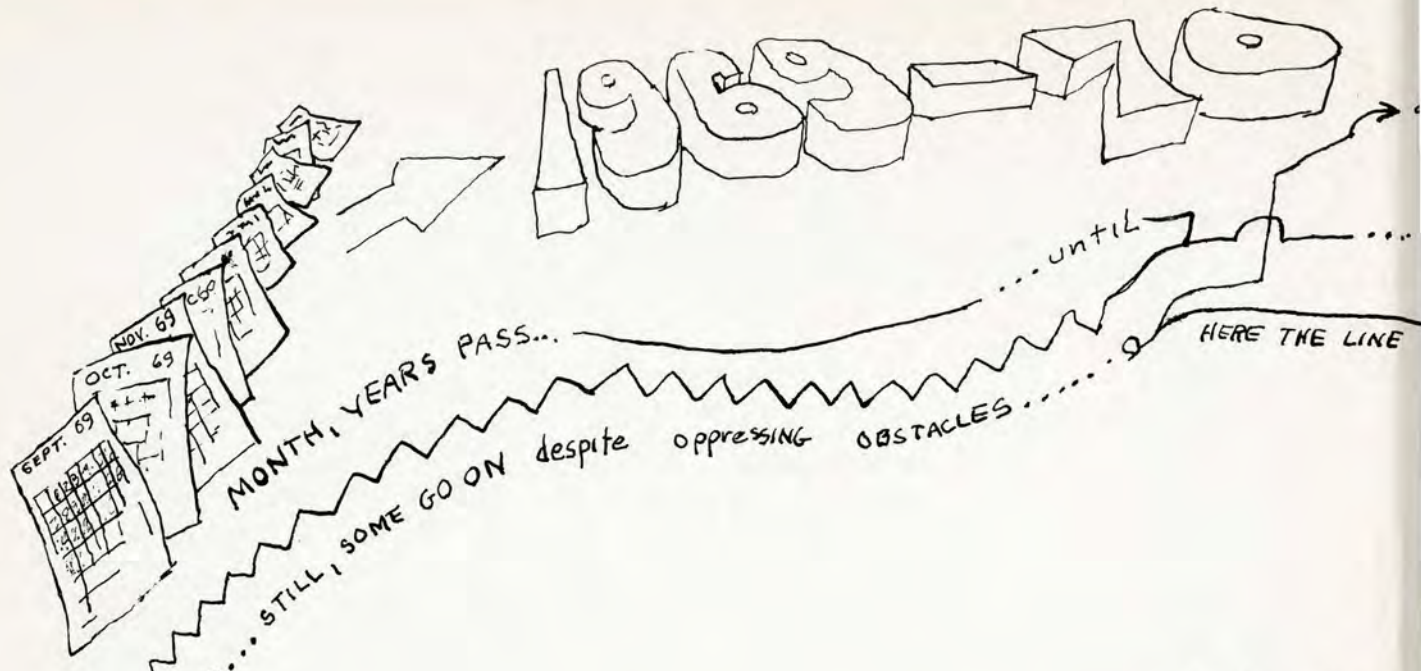 1969-70
SEPT. 69
OCT. 69
NOV. 69
MONTH, YEARS PASS... ... until
... STILL, SOME GO ON despite oppressING OBSTACLES......
HERE THE LINE